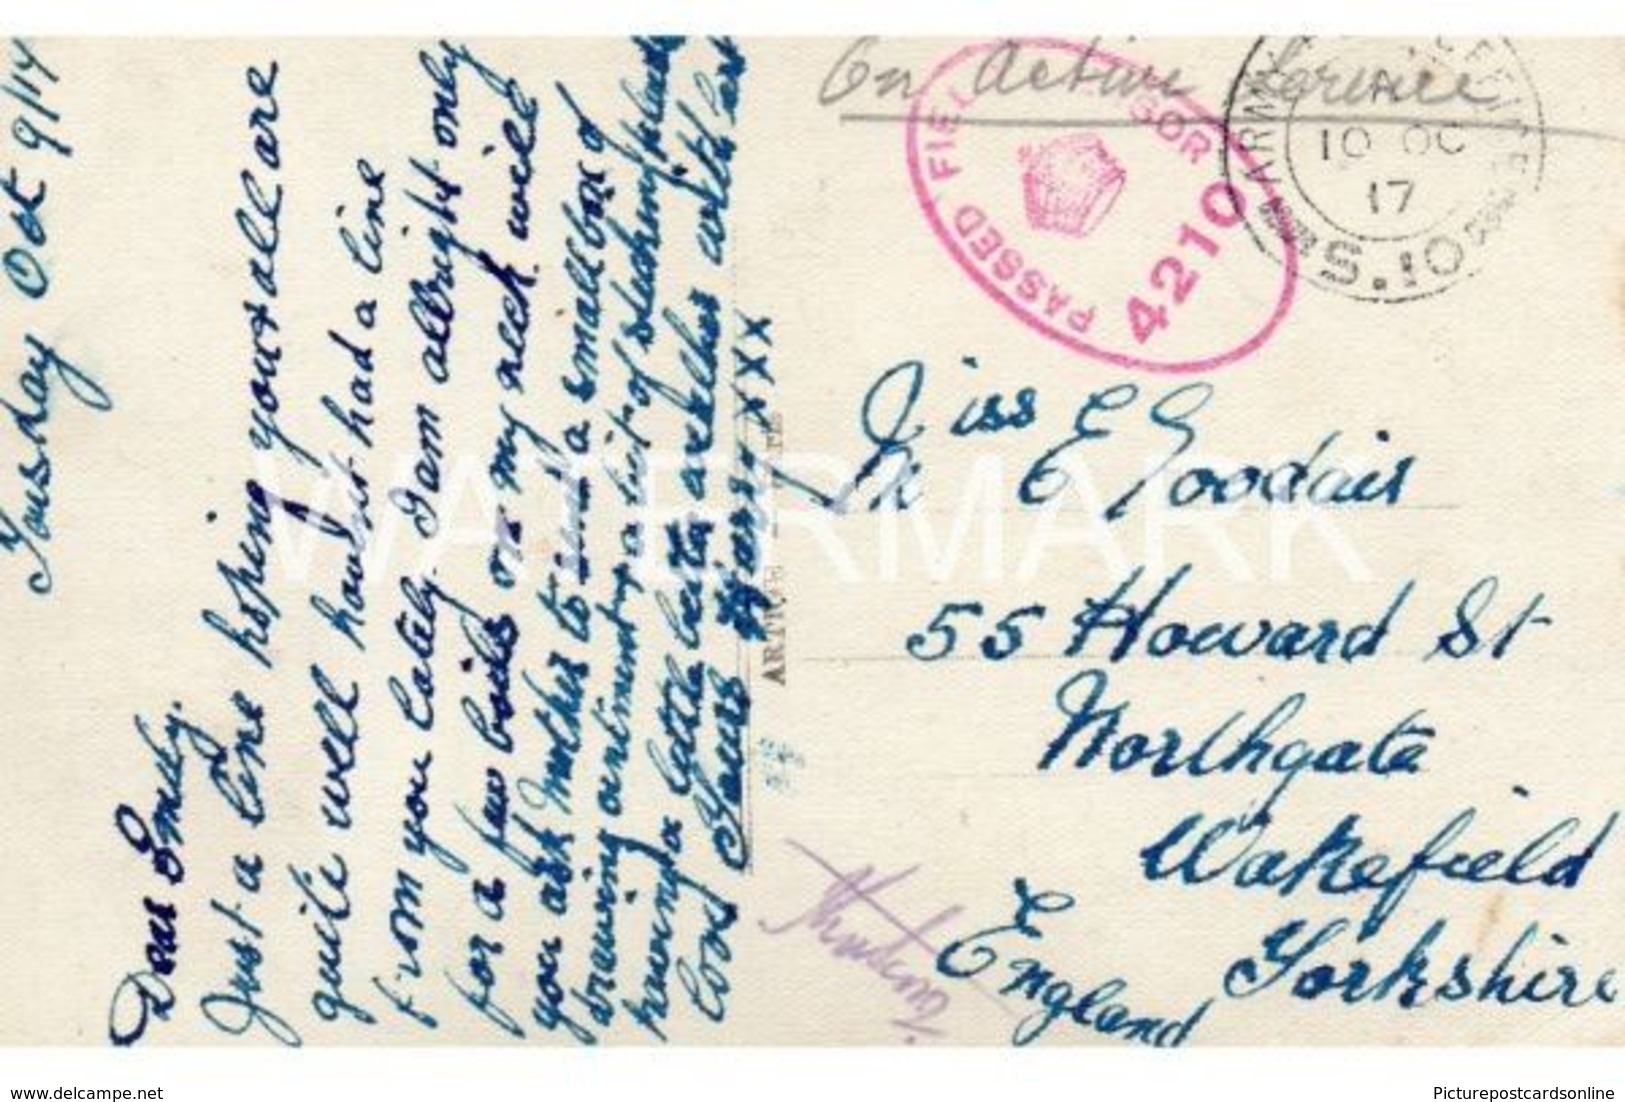 Tousday Oct 9/17
Dear Emily.
Just a line hoping you & all are
quite well havent had a line
from you lately. I am allright only
for a few boils on my neck will
you ask Mother to send a small box of
drawing ointment, a bit of
a little better
love Yours Harry XXX
ARTIGUE
On Active Service
PASSED FIELD CENSOR
4210
ARMY POST OFFICE
A
10 OC
17
S.10
Miss E Goodair
55 Howard St
Northgate
Wakefield
Yorkshire
England
WATERMARK
www.delcampe.net
Picturepostcardsonline